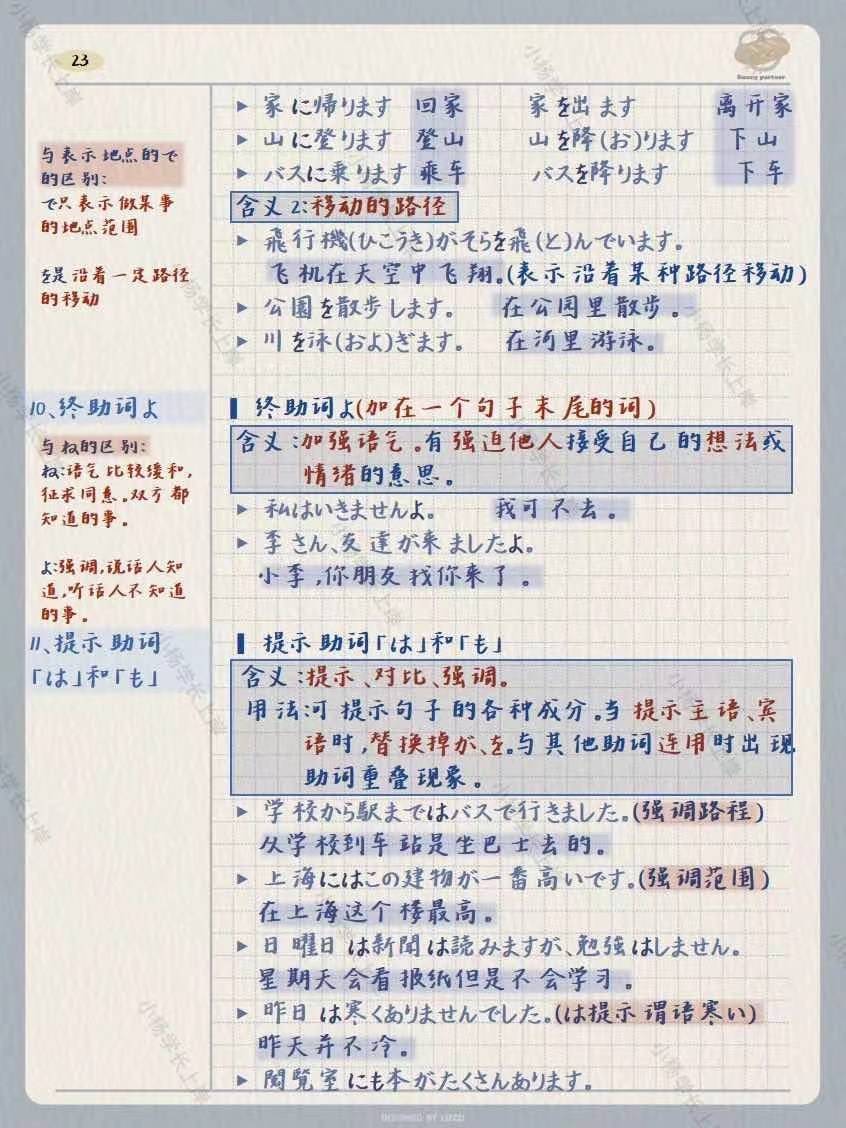 23
Sunny partner
▶ 家に帰ります 回家 家を出ます 离开家
▶ 山に登ります 登山 山を降(お)ります 下山
▶ バスに乗ります 乘车 バスを降ります 下车
与表示地点的で
的区别:
で只表示做某事
的地点范围
を是沿着一定路径
的移动
含义2:移动的路径
▶ 飛行機(ひこうき)がそらを飛(と)んでいます。
飞机在天空中飞翔。(表示沿着某种路径移动)
▶ 公園を散歩します。 在公园里散步。
▶ 川を泳(およ)ぎます。 在河里游泳。
10、终助词よ
与ね的区别:
ね:语气比较缓和,
征求同意。双方都
知道的事。
よ:强调,说话人知
道,听话人不知道
的事。
终助词よ(加在一个句子末尾的词)
含义:加强语气。有强迫他人接受自己的想法或
情绪的意思。
▶ 私はいきませんよ。 我可不去。
▶ 李さん、友達が来ましたよ。
小李,你朋友找你来了。
11、提示助词
「は」和「も」
提示助词「は」和「も」
含义:提示、对比、强调。
用法:可提示句子的各种成分。当提示主语、宾
语时,替换掉が、を。与其他助词连用时出现
助词重叠现象。
▶ 学校から駅まではバスで行きました。(强调路程)
从学校到车站是坐巴士去的。
▶ 上海にはこの建物が一番高いです。(强调范围)
在上海这个楼最高。
▶ 日曜日は新聞は読みますが、勉強はしません。
星期天会看报纸但是不会学习。
▶ 昨日は寒くありませんでした。(は提示谓语寒い)
昨天并不冷。
▶ 閲覧室にも本がたくさんあります。
DESIGNED BY LIZZI
小杨学长上岸